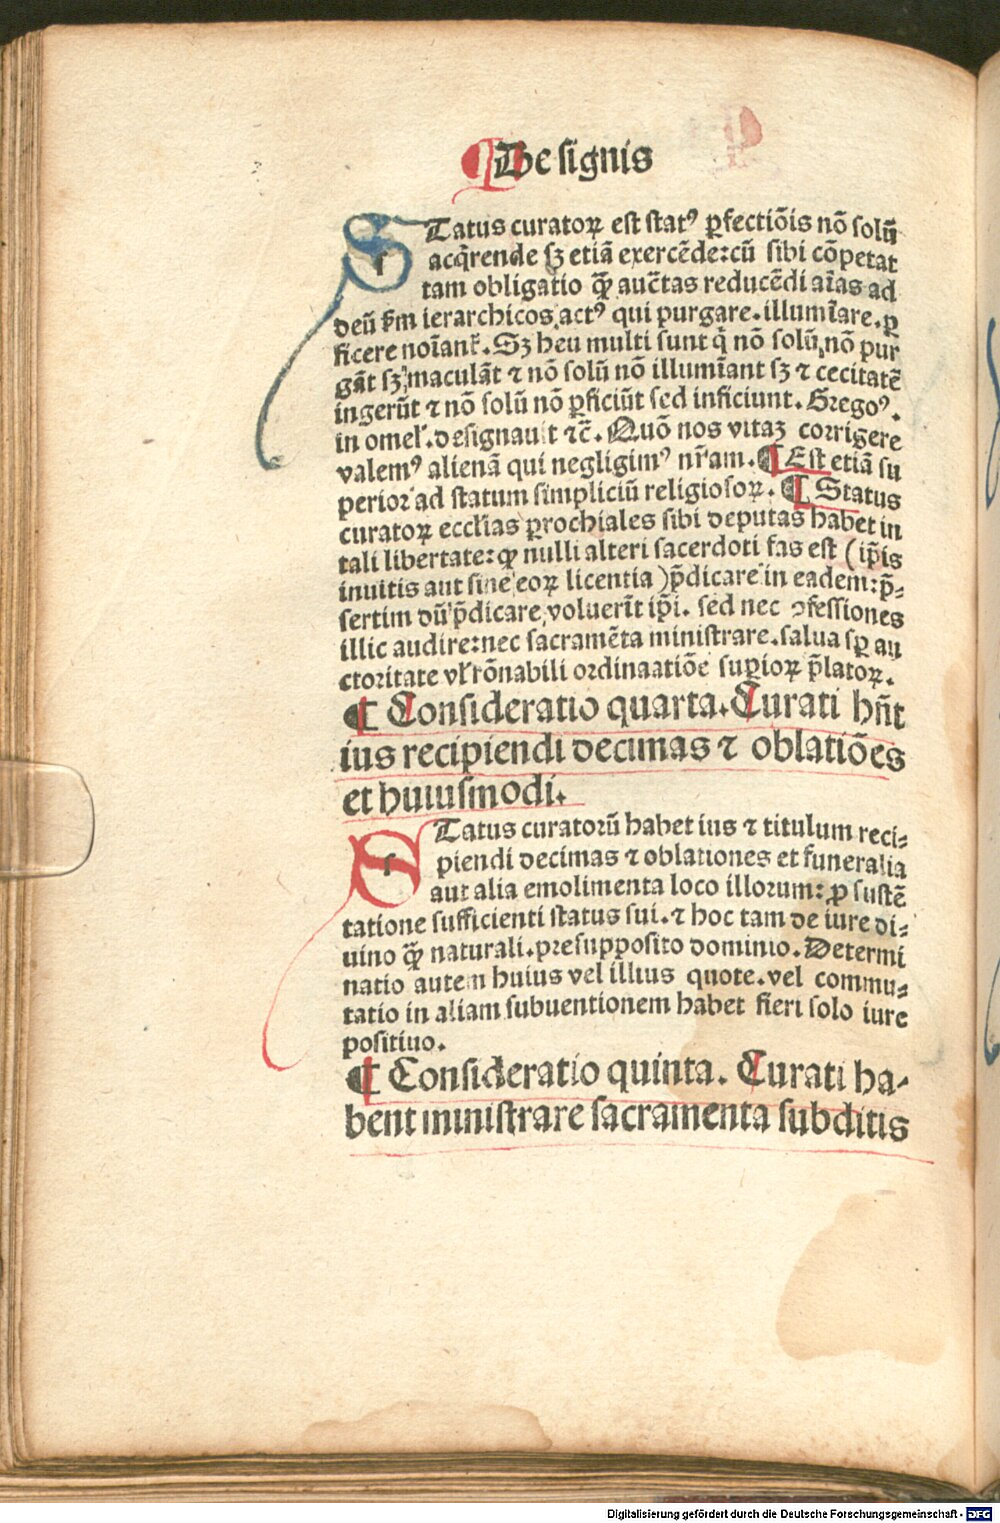 ¶De signis
STatus curatoꝝ est statꝰ ꝑfectiōis nō solū
acq̄rende sꝫ etiā exercēde:cū sibi cōpetat
tam obligatio ꝙ̄ auc̄tas reducēdi aīas ad
deū ẜm ierarchicos actꝰ qui purgare.illumīare.ꝑ
ficere noīant̄. Sꝫ heu multi sunt q̄ nō solū nō pur
gāt sꝫ maculāt ⁊ nō solū nō illumīant sꝫ ⁊ cecitatē
ingerūt ⁊ nō solū nō ꝑficiūt sed inficiunt. Gregoꝰ.
in omel̄.designauit ⁊c̄. Quō nos vitaꝫ corrigere
valemꝰ alienā qui negligimꝰ nr̄am. ¶ Est etiā su
perior ad statum simpliciū religiosoꝝ. ¶ Status
curatoꝝ eccl̄ias ꝑrochiales sibi deputas habet in
tali libertate:ꝙ nulli alteri sacerdoti fas est (ip̄is
inuitis aut sine eoꝝ licentia) p̄dicare in eadem:p̄⸗
sertim dū p̄dicare voluerīt ip̄i. sed nec ꝯfessiones
illic audire:nec sacramēta ministrare.salua sꝑ au
ctoritate vl̄ rōnabili ordinaatiōe suꝑioꝝ p̄latoꝝ.
¶ Consideratio quarta. Curati hn̄t
ius recipiendi decimas ⁊ oblatiōes
et huiusmodi.
STatus curatorū habet ius ⁊ titulum reci⸗
piendi decimas ⁊ oblationes et funeralia
aut alia emolimenta loco illorum: ꝓ sustē
tatione sufficienti status sui. ⁊ hoc tam de iure di⸗
uino ꝙ̄ naturali.presupposito dominio. Determi
natio autem huius vel illius quote.vel commu⸗
tatio in aliam subuentionem habet fieri solo iure
positiuo.
¶ Consideratio quinta. Curati ha⸗
bent ministrare sacramenta subditis
Digitalisierung gefördert durch die Deutsche Forschungsgemeinschaft - DFG